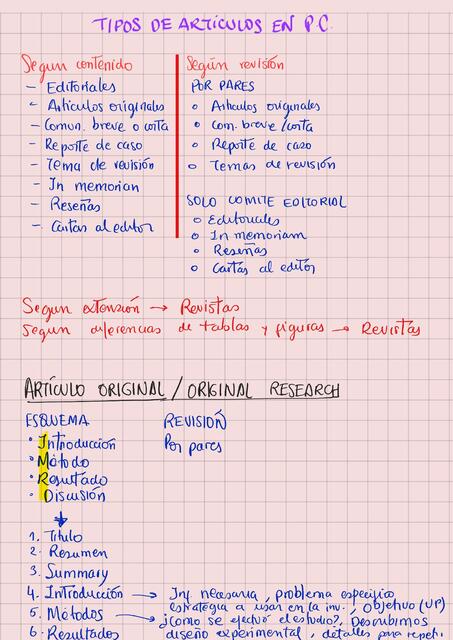 TIPOS DE ARTÍCULOS EN P.C.
Segun contenido
- Editoriales
- Artículos originales
- Comun. breve o corta
- Reporte de caso
- Tema de revisión
- In memorian
- Reseñas
- Cartas al editor
Según revisión
POR PARES
o Artículos originales
o Com. breve/corta
o Reporte de caso
o Temas de revisión
SOLO COMITE EDITORIAL
o Editoriales
o In memoriam
o Reseñas
o Cartas al editor
Segun extensión → Revistas
Segun diferencias de tablas y figuras → Revistas
ARTÍCULO ORIGINAL / ORIGINAL RESEARCH
ESQUEMA
• Introducción
• Método
• Resultado
• Discusión
REVISIÓN
Por pares
1. Titulo
2. Resumen
3. Summary
4. Introducción → Inf. necesaria, problema especifico
estrategia a usar en la inv., Objetivo (UP)
5. Métodos → ¿Como se efectuó el estudio?, Describimos
diseño experimental, detalles para repeti.
6. Resultados